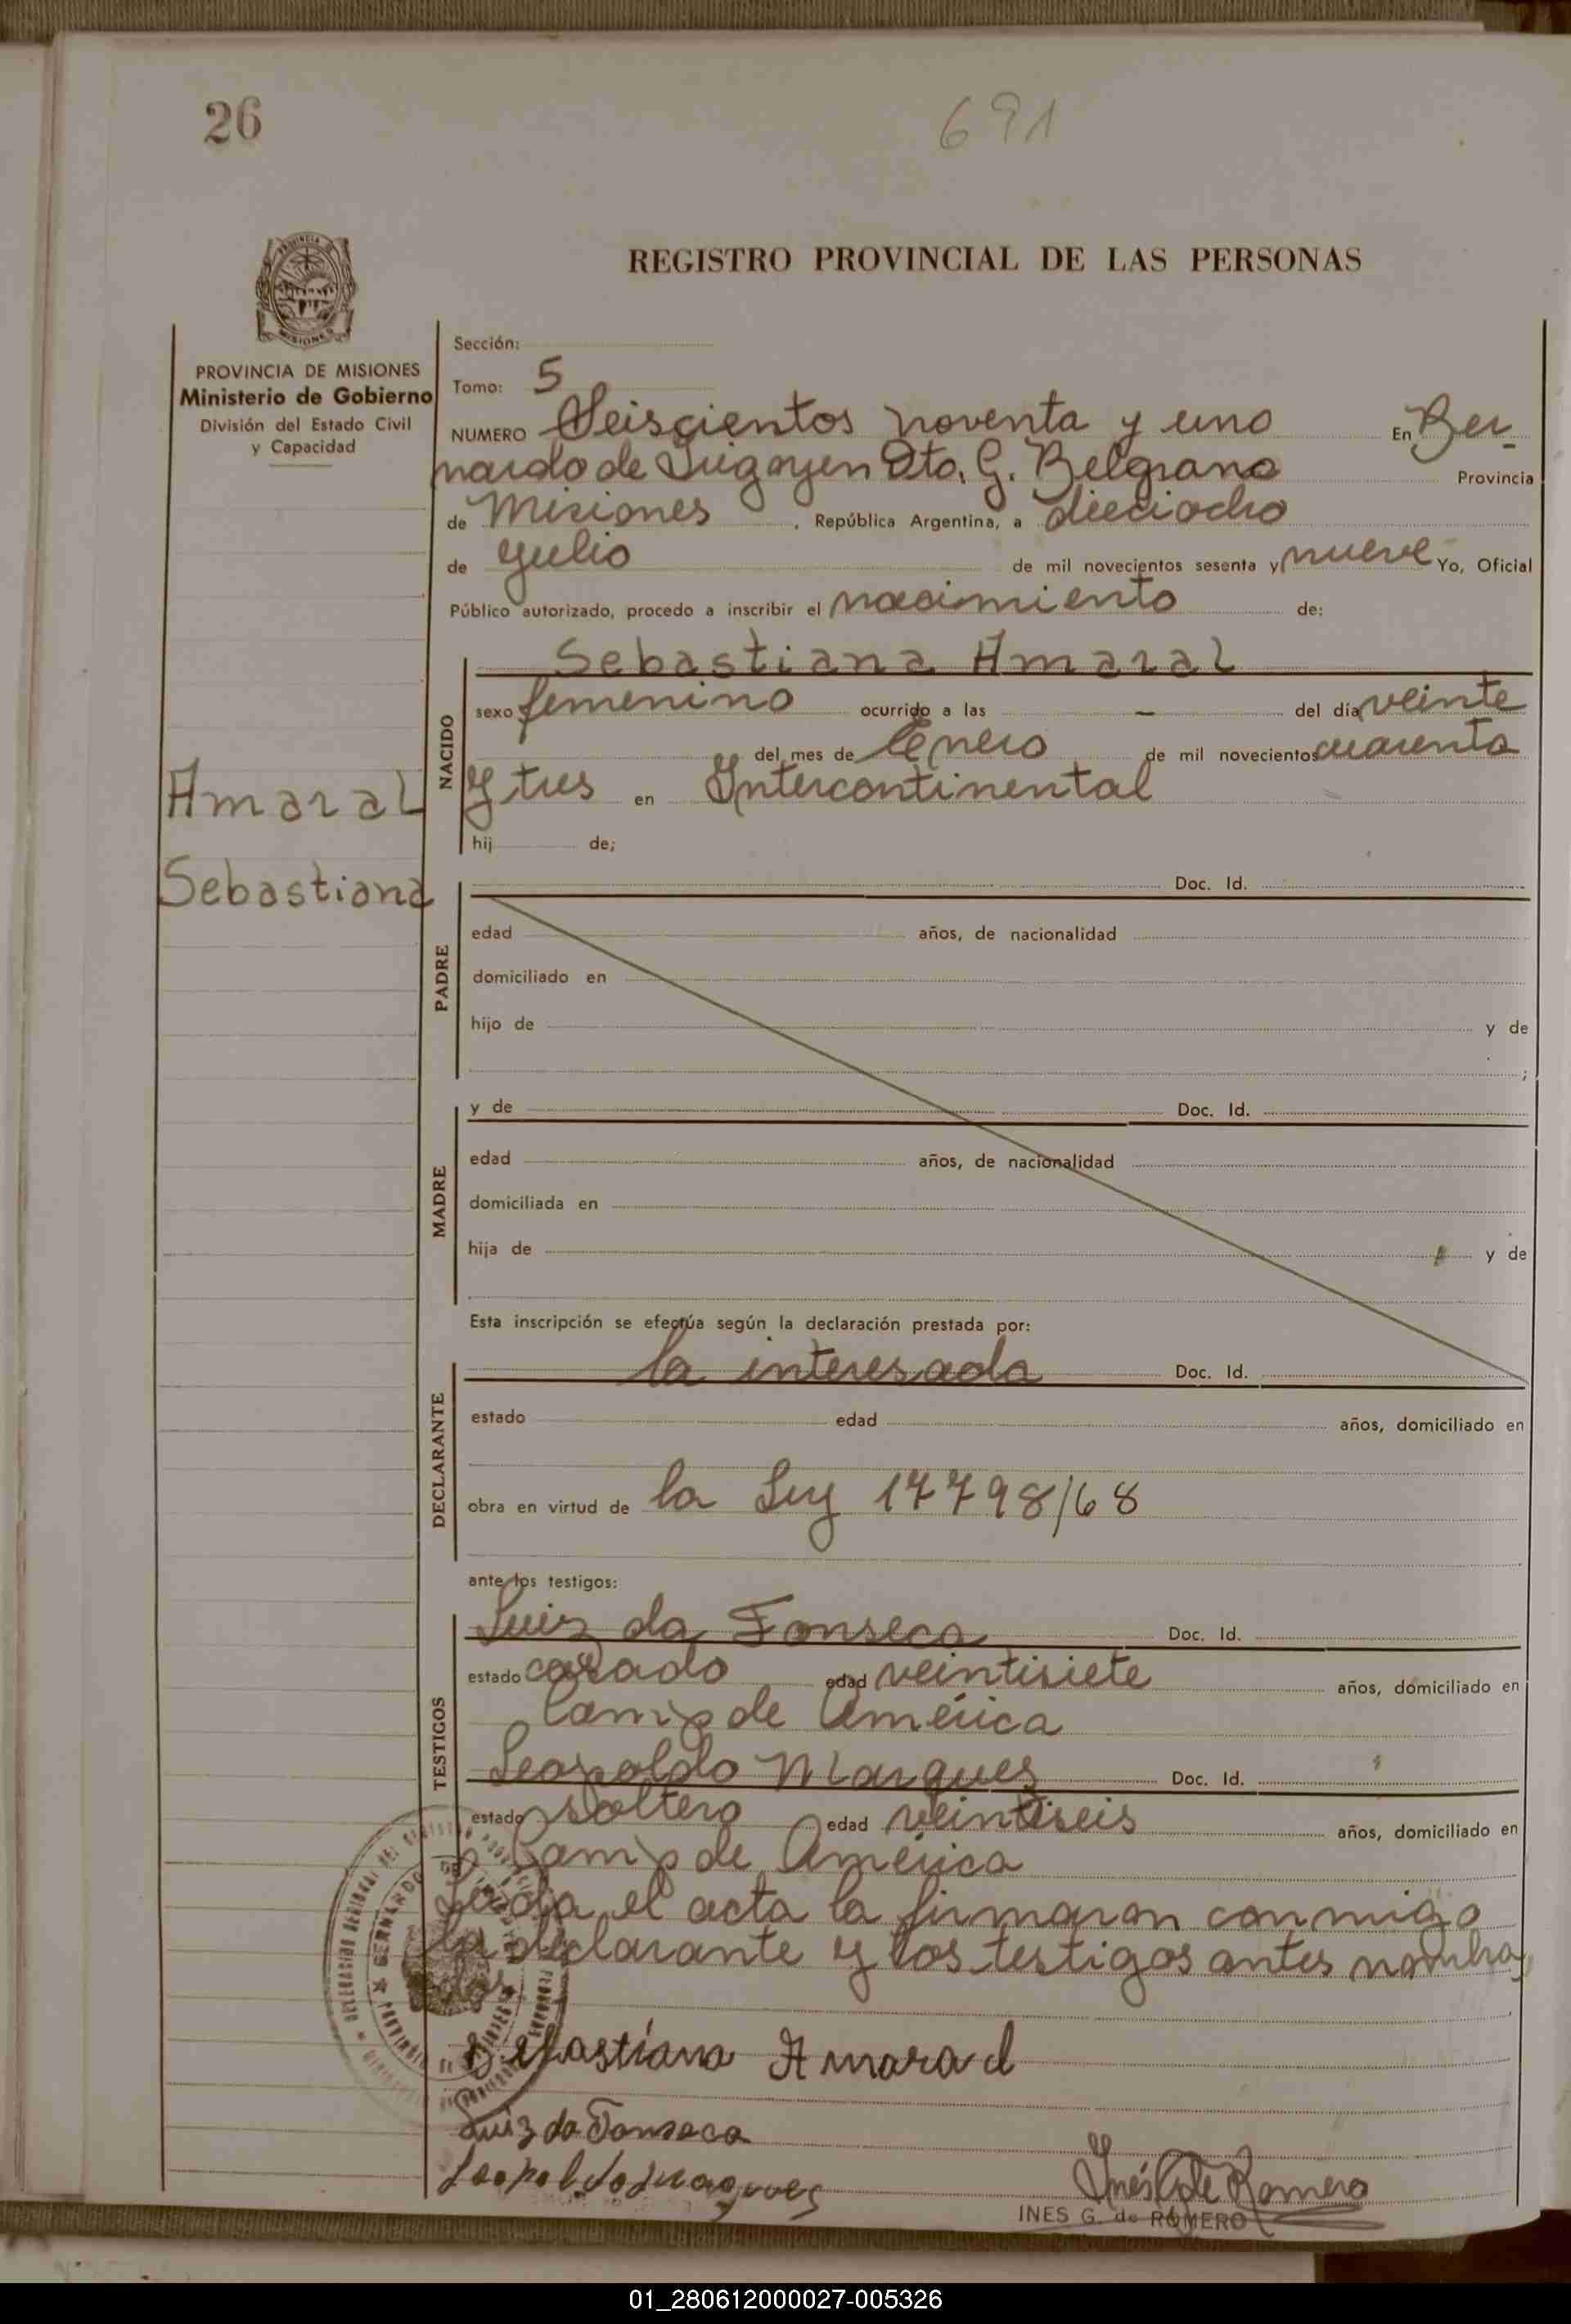 26
691
REGISTRO PROVINCIAL DE LAS PERSONAS
PROVINCIA DE MISIONES
Ministerio de Gobierno
División del Estado Civil
y Capacidad
Sección:
Tomo: 5
NUMERO Seiscientos noventa y uno En Ber-
nardo de Irigoyen Dto. G. Belgrano Provincia
de Misiones, República Argentina, a dieciocho
de Julio de mil novecientos sesenta y nueve Yo, Oficial
Público autorizado, procedo a inscribir el nacimiento de:
Amaral
Sebastiana
NACIDO
Sebastiana Amaral
sexo femenino ocurrido a las — del día veinte
del mes de Enero de mil novecientos cuarenta
y tres en Intercontinental
hij de;
PADRE
Doc. Id.
edad años, de nacionalidad
domiciliado en
hijo de y de
;
MADRE
y de Doc. Id.
edad años, de nacionalidad
domiciliada en
hija de y de
Esta inscripción se efectúa según la declaración prestada por:
DECLARANTE
la interesada Doc. Id.
estado edad años, domiciliado en
obra en virtud de la Ley 17798/68
ante los testigos:
TESTIGOS
Luiz da Fonseca Doc. Id.
estado casado edad veintisiete años, domiciliado en
Camp de América
Leopoldo Marques Doc. Id.
estado soltero edad veintiseis años, domiciliado en
Camp de América
Leida el acta la firmaron conmigo
la declarante y los testigos antes nombra
dos
Sebastiana Amaral
Luiz da Fonseca
Leopoldo Marques
Inés G de Romero
INES G. de ROMERO
01_280612000027-005326